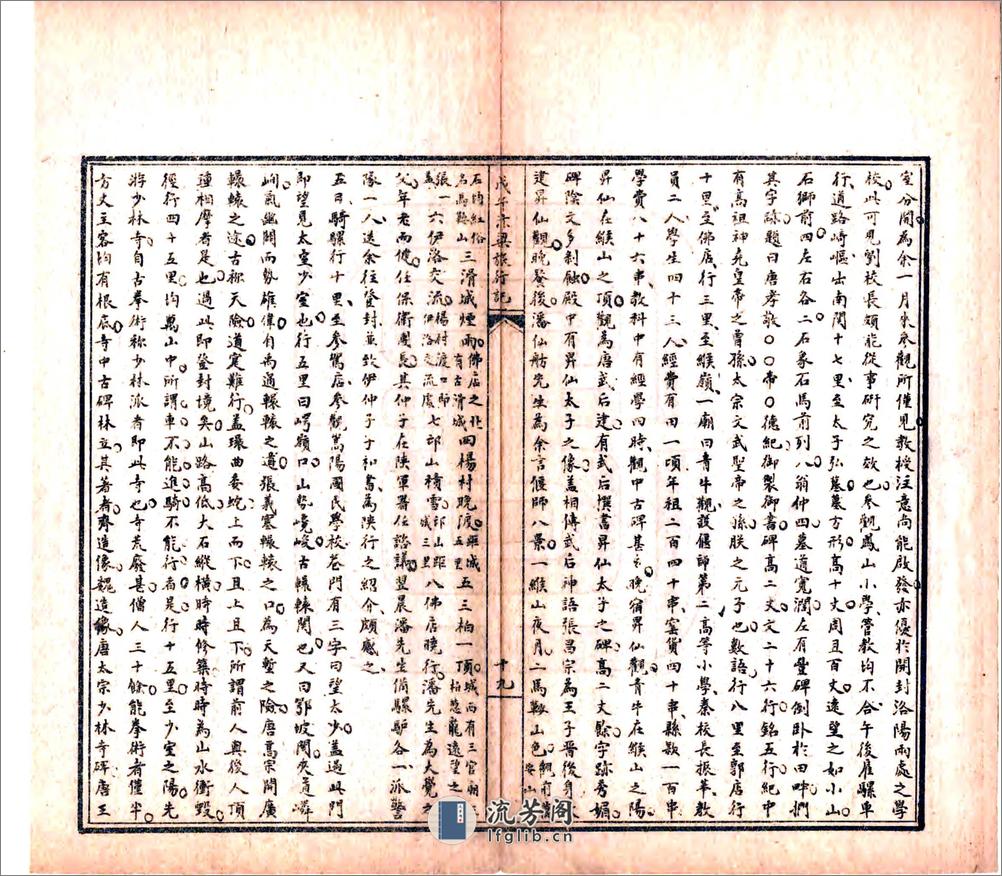 室分閱為余一月來參觀所僅見教授注意尚能啟發亦優於開封洛陽兩處之學
校此可見劉校長頗能從事研究之效也參觀鳳山小學管教均不合午後雇騾車
行道路崎嶇出南關十七里至太子弘墓墓方形高十丈周且百丈遠望之如小山
石獅前四左右各二石象石馬前列八翁仲四墓道寬濶左有豐碑倒臥於田畔捫
其字跡題曰唐孝敬〇〇帝〇〇德紀御製御書碑高二丈文二十六行銘五行紀中
有高祖神堯皇帝之曾孫太宗文武聖帝之孫朕之元子也數語行八里至郭店行
十里至佛店行三里至緱嶺一廟曰青牛觀設偃師第二高等小學秦校長振華教
員二人學生四十三人經費有田一頃年租二百四十串窰貨四十串縣款一百串
學費八十六串教科中有經學四時觀中古碑甚多晚宿昇仙觀青牛在緱山之陽
昇仙在緱山之頂觀為唐武后建有武后撰書昇仙太子之碑高二丈餘字跡秀媚
碑陰文多剝蝕殿中有昇仙太子之像蓋相傳武后神語張昌宗為王子晋後身敕
建昇仙觀晚餐後潘仙舫先生為余言偃師八景一緱山夜月二馬鞍山色
戊午京梁旅行記
十九
石均紅俗名馬鞍山三滑城煙雨佛店之北有古滑城四楊村晚渡五三柏一頂
張蓋六伊洛交流楊村渡口即伊洛交流處七邙山積雪邙山距城三里八佛店曉行潘先生為大覺之
父年老而健任保衛團長其仲子在陝軍署任諮議翌晨潘先生僱騾驢各一派警
隊一人送余往登封並致伊仲子子和書為陝行之紹介頗感之
五日騎騾行十里至參駕店參觀嵩陽國民學校巷門有三字曰望太少蓋過此門
即望見太室少室也行五里曰崿嶺口山勢峻古轘轅關也又曰鄂坡關夾道嶙
峋氣幽闊而勢雄偉有為適轘轅之道張義塞轘轅之口為天塹之險唐高宗開廣
轘轅之途古称天險道寔難行蓋環曲委蛇上而下且上且下所謂前人與後人頂
踵相摩者是也過此即登封境矣山路高低大石縱横時時修築時時為山水衝毀
徑行四十五里均萬山中所謂車不能進騎不能行者是行十五里至少室之陽先
游少林寺自古拳術称少林派者即此寺也寺荒廢甚僧人三十餘能拳術者僅半
方丈主客均有根底寺中古碑林立其著者齊造像魏造像唐太宗少林寺碑唐王
流芳阁
lfglib.cn